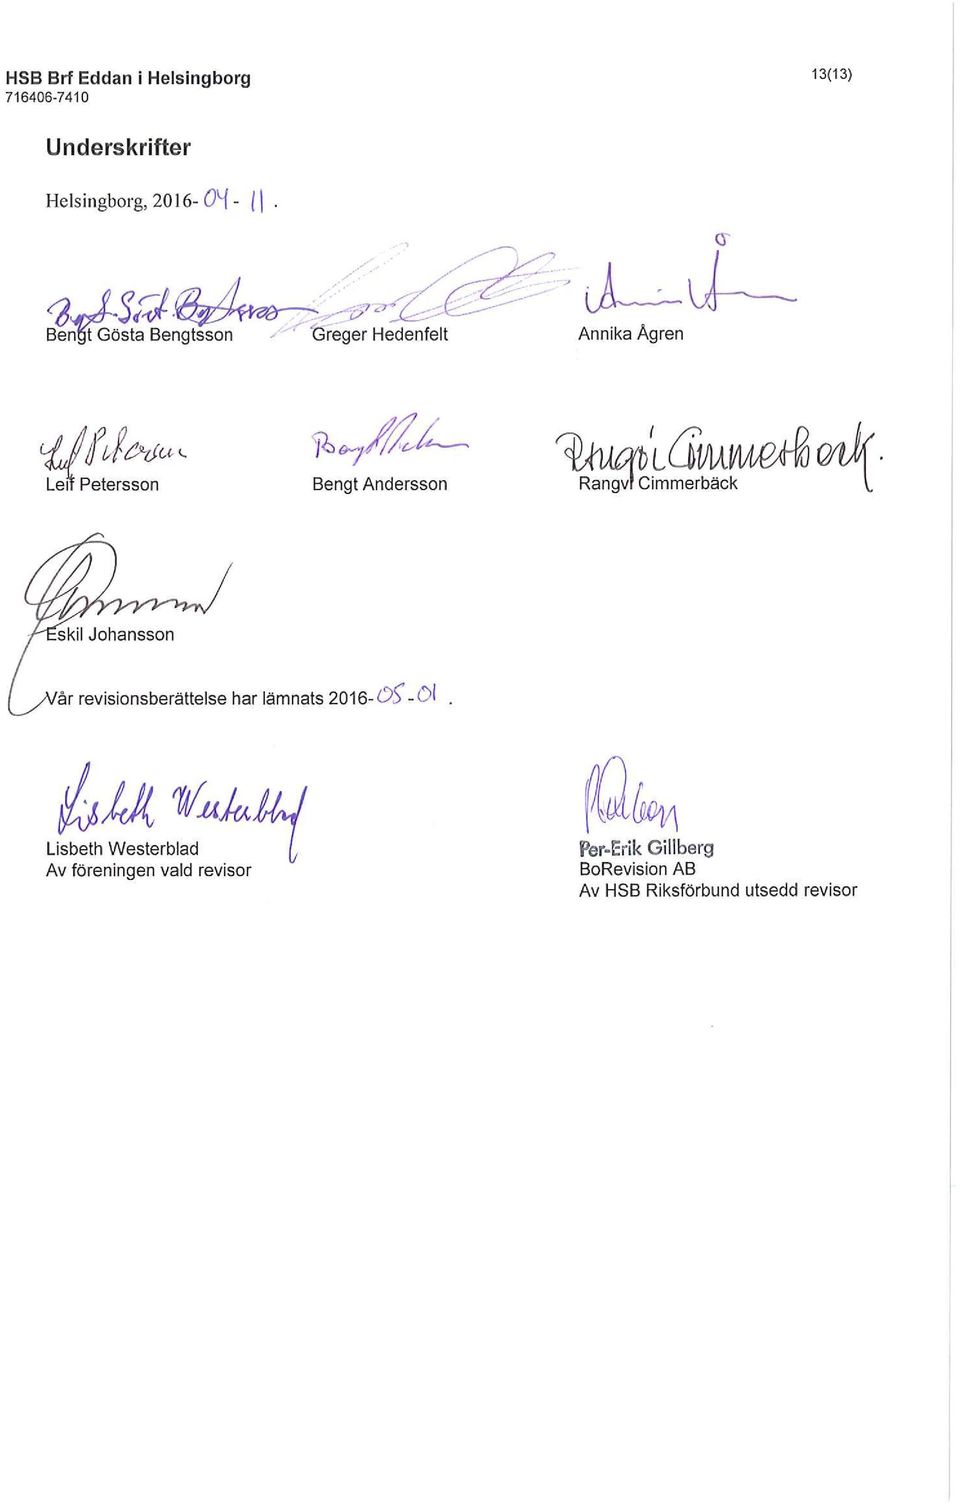 HSB Brf Eddan i Helsingborg
13(13)
716406-7410
Underskrifter
Helsingborg, 2016-04-11.
Bengt Gösta Bengtsson
Greger Hedenfelt
Annika Ågren
Leif Petersson
Bengt Andersson
Rangvi Cimmerbäck
Eskil Johansson
Vår revisionsberättelse har lämnats 2016-05-01.
Lisbeth Westerblad
Lisbeth Westerblad
Av föreningen vald revisor
Per-Erik Gillberg
BoRevision AB
Av HSB Riksförbund utsedd revisor